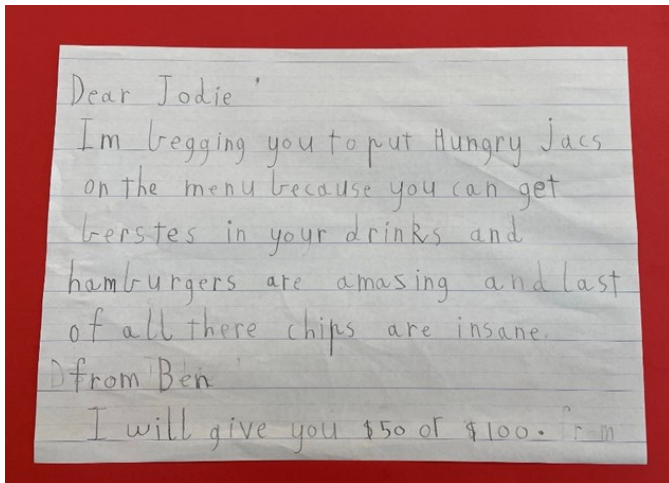 Dear Jodie
Im begging you to put Hungry Jacs
on the menu because you can get
berstes in your drinks and
hamburgers are amasing and last
of all there chips are insane.
from Ben
I will give you $50 or $100. from